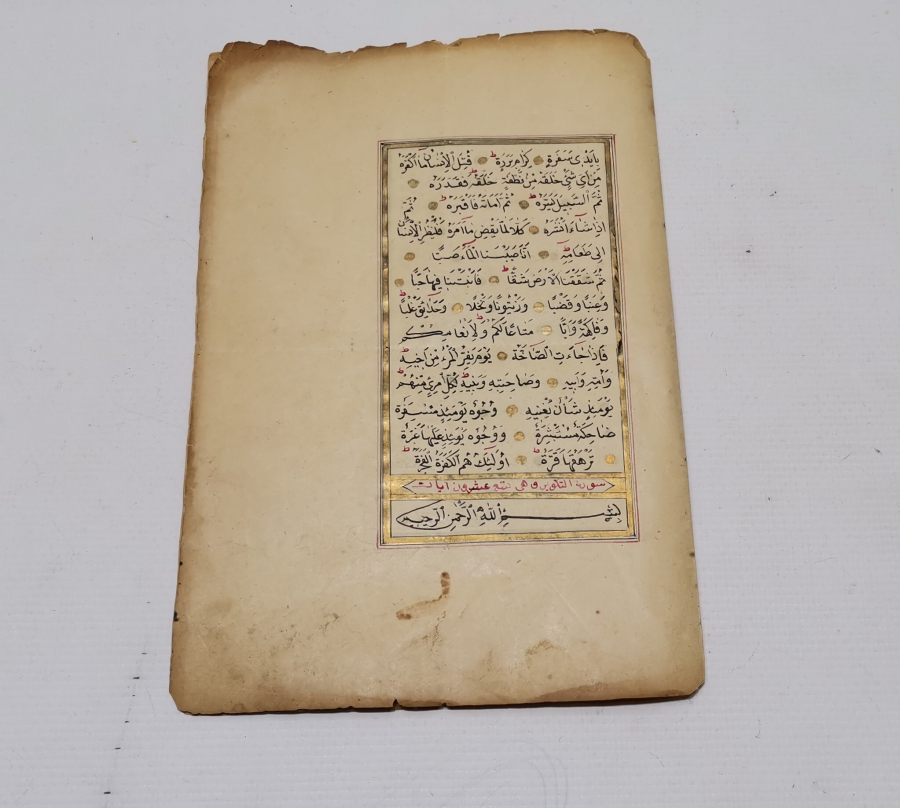 بِاَيْدٖي سَفَرَةٍ كِرَامٍ بَرَرَةٍ قُتِلَ الْاِنْسَانُ مَٓا اَكْفَرَهُ
مِنْ اَيِّ شَيْءٍ خَلَقَهُ مِنْ نُطْفَةٍ خَلَقَهُ فَقَدَّرَهُ
ثُمَّ السَّبٖيلَ يَسَّرَهُ ثُمَّ اَمَاتَهُ فَاَقْبَرَهُ ثُمَّ
اِذَا شَٓاءَ اَنْشَرَهُ كَلَّا لَمَّا يَقْضِ مَٓا اَمَرَهُ فَلْيَنْظُرِ الْاِنْسَانُ
اِلٰى طَعَامِهٖ اَنَّا صَبَبْنَا الْمَٓاءَ صَبًّا
ثُمَّ شَقَقْنَا الْاَرْضَ شَقًّا فَاَنْبَتْنَا فٖيهَا حَبًّا
وَعِنَبًا وَقَضْبًا وَزَيْتُونًا وَنَخْلًا وَحَدَٓائِقَ غُلْبًا
وَفَاكِهَةً وَاَبًّا مَتَاعًا لَكُمْ وَلِاَنْعَامِكُمْ
فَاِذَا جَٓاءَتِ الصَّٓاخَّةُ يَوْمَ يَفِرُّ الْمَرْءُ مِنْ اَخٖيهِ
وَاُمِّهٖ وَاَبٖيهِ وَصَاحِبَتِهٖ وَبَنٖيهِ لِكُلِّ امْرِئٍ مِنْهُمْ
يَوْمَئِذٍ شَاْنٌ يُغْنٖيهِ وُجُوهٌ يَوْمَئِذٍ مُسْفِرَةٌ
ضَاحِكَةٌ مُسْتَبْشِرَةٌ وَوُجُوهٌ يَوْمَئِذٍ عَلَيْهَا غَبَرَةٌ
تَرْهَقُهَا قَتَرَةٌ اُولٰٓئِكَ هُمُ الْكَفَرَةُ الْفَجَرَةُ
سورة التكوير وهي تسع عشرون ايات
بِسْمِ اللّٰهِ الرَّحْمٰنِ الرَّحٖيمِ